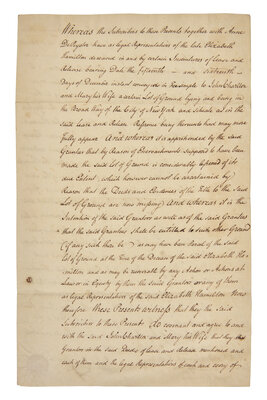 Whereas the Subscribers to these Presents together with Anne
DePeyster have as legal Representatives of the late Elizabeth
Hamilton deceased in and by certain Indentures of Lease and
Release bearing Date the fifteenth and sixteenth
Days of December instant conveyed in Feesimple to John Charlton
and Mary his Wife a certain Lot of Ground lying and being in
the Broad Way of the City of New York and Situate as in the
said Lease and Release Reference being thereunto have may more
fully appear And whereas it is apprehended by the said
Grantees that by Reason of Encroachments supposed to have been
made the said Lot of Ground is considerably lessened of its
due Extent which however cannot be ascertained by
Reason that the Deeds and Evidences of the Title to the said
Lot of Ground are now missing And whereas it is the
Intention of the said Grantors as well as of the said Grantees
that the said Grantees shall be entitled to such other Ground
(if any such there be) as may have been Parcel of the said
Lot of Ground at the Time of the Decease of the said Elizabeth Ha-
milton and as may be recoverable by any Action or Actions at
Law or in Equity by them the said Grantors or any of them
as legal Representatives of the said Elizabeth Hamilton Now
therefore These Presents witness that they the said
Subscribers to these Presents Do covenant and agree to and
with the said John Charlton and Mary his Wife that they the
Grantors in the said Deeds of Lease and Release mentioned and
each of them and the legal Representatives of each and every of